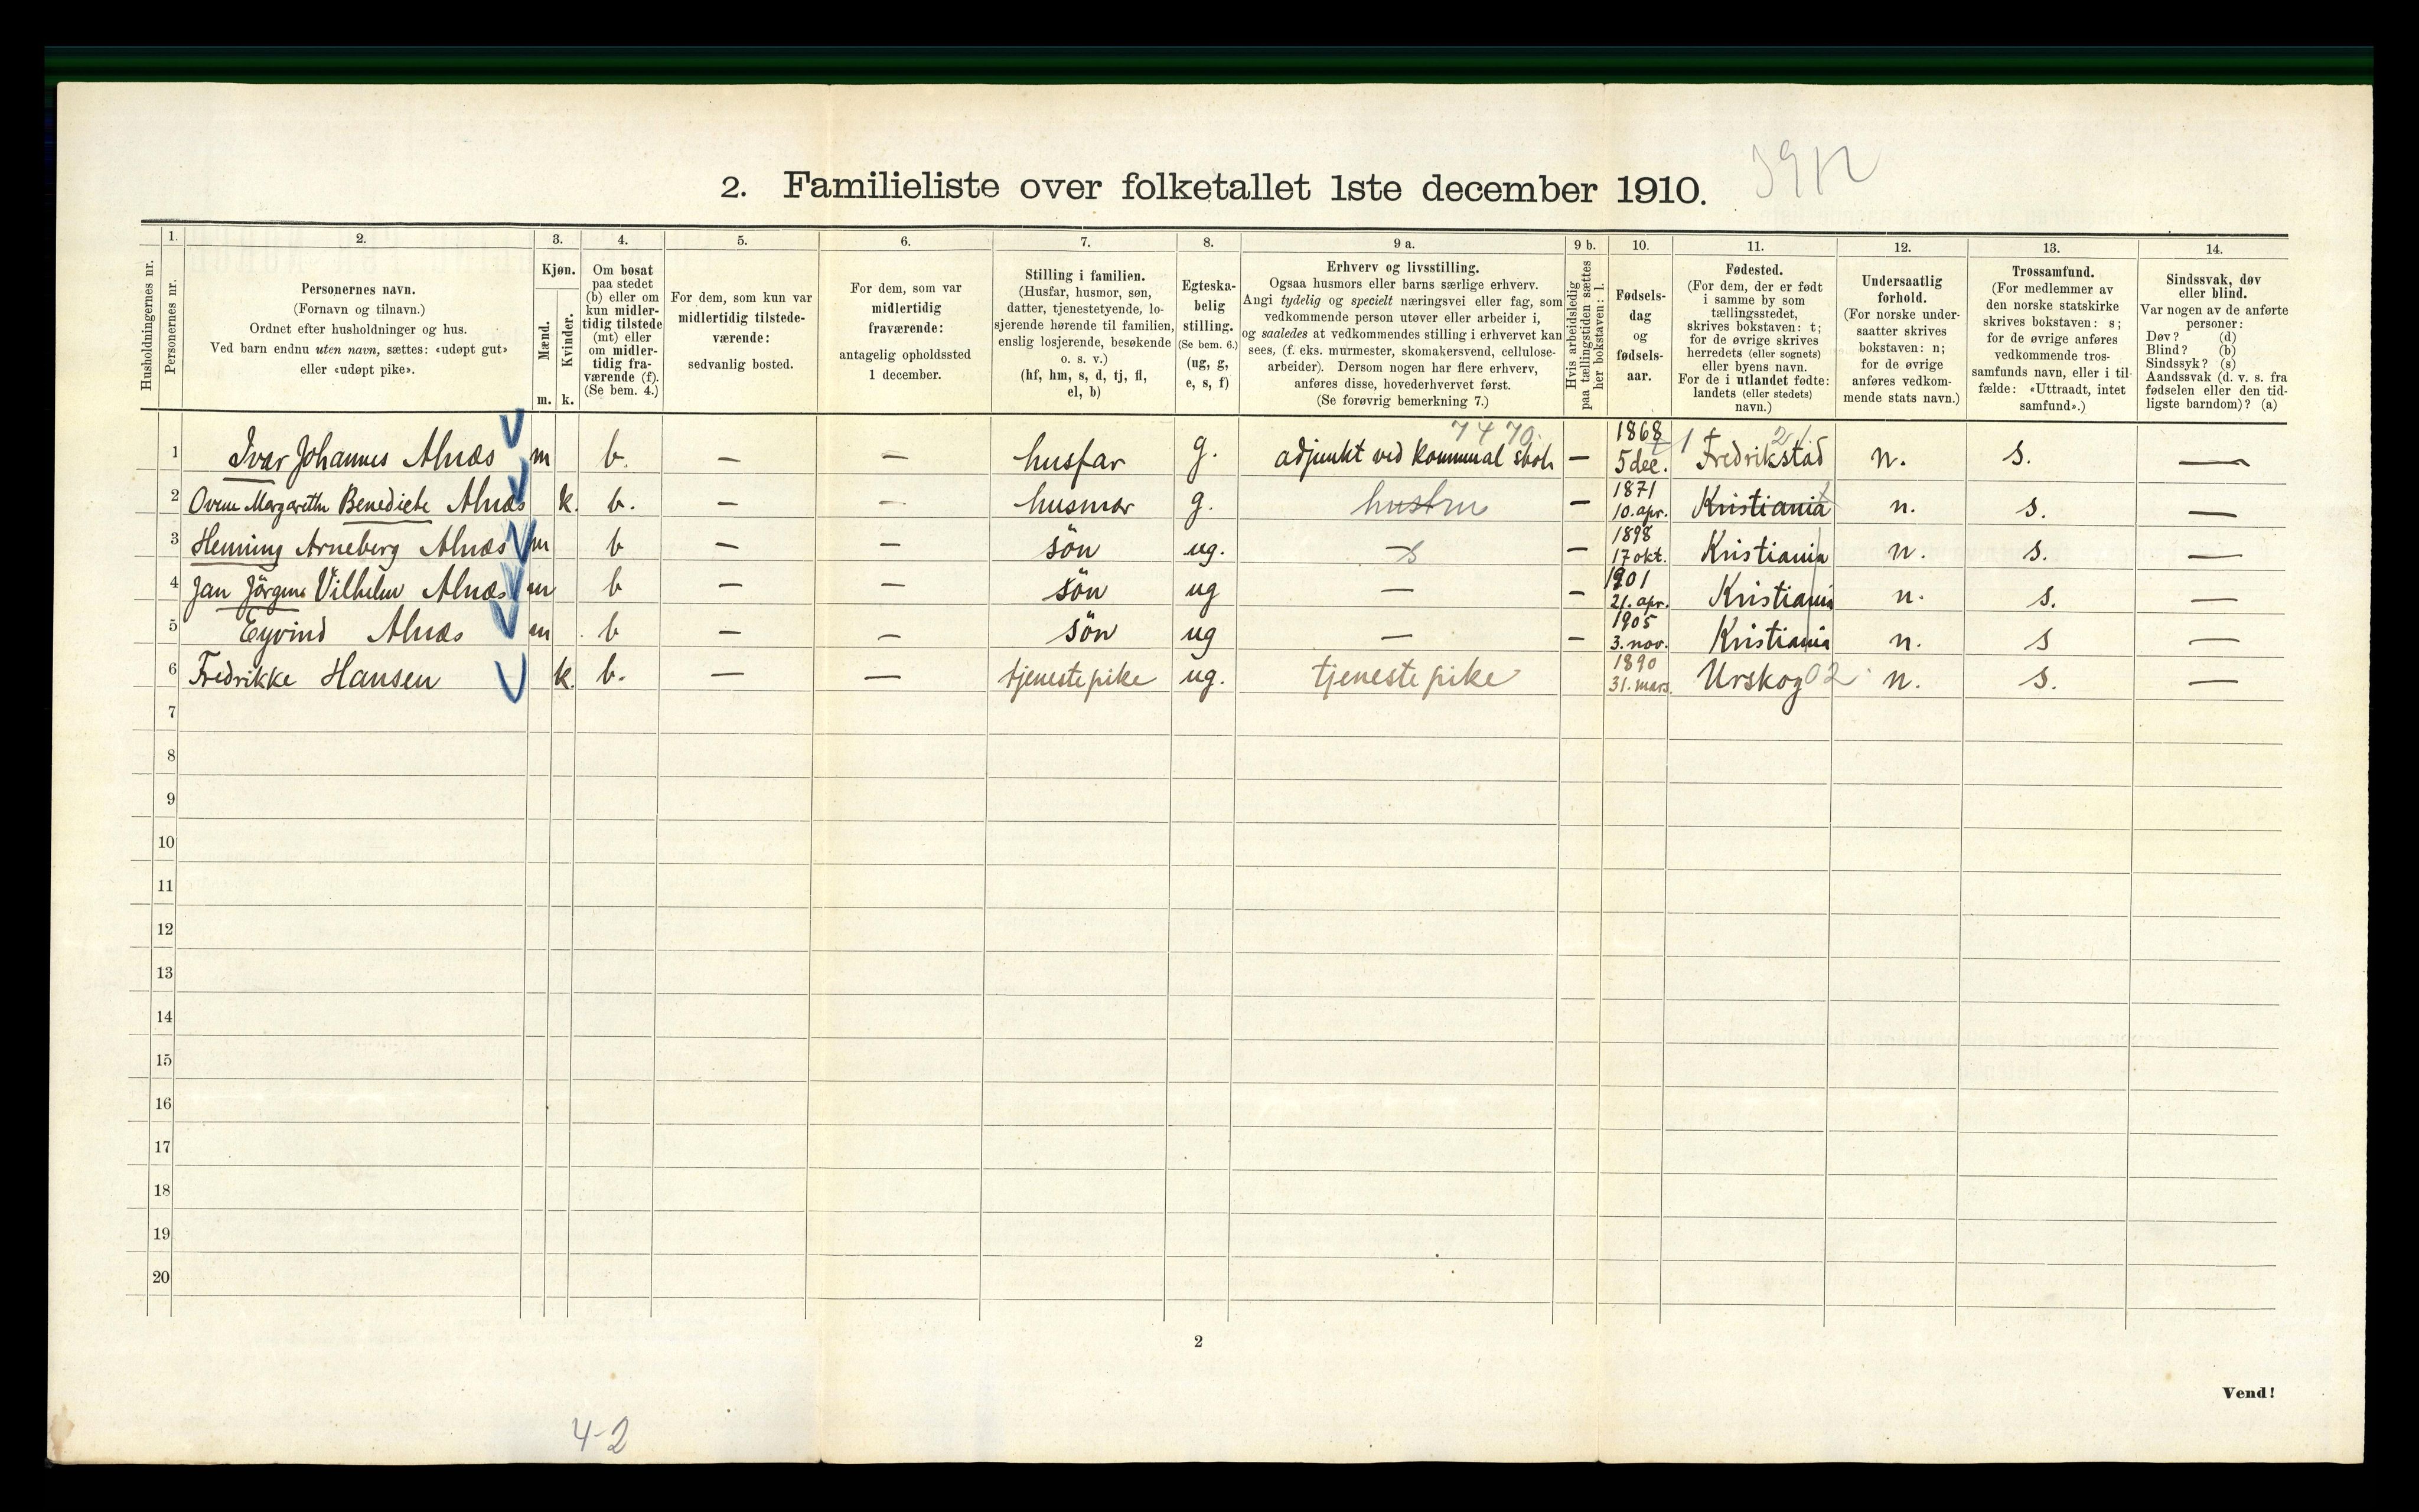 2. Familieliste over folketallet 1ste december 1910.
Husholdningernes nr.
1.
Personernes nr.
2.
Personernes navn.
(Fornavn og tilnavn.)
Ordnet efter husholdninger og hus.
Ved barn endnu uten navn, sættes: «udøpt gut»
eller «udøpt pike».
3.
Kjøn.
Mænd.
Kvinder.
m. k.
4.
Om bosat
paa stedet
(b) eller om
kun midler-
tidig tilstede
(mt) eller
om midler-
tidig fra-
værende (f).
(Se bem. 4.)
5.
For dem, som kun var
midlertidig tilstede-
værende:
sedvanlig bosted.
6.
For dem, som var
midlertidig
fraværende:
antagelig opholdssted
1 december.
7.
Stilling i familien.
(Husfar, husmor, søn,
datter, tjenestetyende, lo-
sjerende hørende til familien,
enslig losjerende, besøkende
o. s. v.)
(hf, hm, s, d, tj, fl,
el, b)
8.
Egteska-
belig
stilling.
(Se bem. 6.)
(ug, g,
e, s, f)
9 a.
Erhverv og livsstilling.
Ogsaa husmors eller barns særlige erhverv.
Angi tydelig og specielt næringsvei eller fag, som
vedkommende person utøver eller arbeider i,
og saaledes at vedkommendes stilling i erhvervet kan
sees, (f. eks. murmester, skomakersvend, cellulose-
arbeider). Dersom nogen har flere erhverv,
anføres disse, hovederhvervet først.
(Se forøvrig bemerkning 7.)
9 b.
Hvis arbeidsledig
paa tællingstiden sættes
her bokstaven: l.
10.
Fødsels-
dag
og
fødsels-
aar.
11.
Fødested.
(For dem, der er født
i samme by som
tællingsstedet,
skrives bokstaven: t;
for de øvrige skrives
herredets (eller sognets)
eller byens navn.
For de i utlandet fødte:
landets (eller stedets)
navn.)
12.
Undersaatlig
forhold.
(For norske under-
saatter skrives
bokstaven: n;
for de øvrige
anføres vedkom-
mende stats navn.)
13.
Trossamfund.
(For medlemmer av
den norske statskirke
skrives bokstaven: s;
for de øvrige anføres
vedkommende tros-
samfunds navn, eller i til-
fælde: «Uttraadt, intet
samfund».)
14.
Sindssvak, døv
eller blind.
Var nogen av de anførte
personer:
Døv? (d)
Blind? (b)
Sindssyk? (s)
Aandssvak (d. v. s. fra
fødselen eller den tid-
ligste barndom)? (a)
7470
1 Ivar Johannes Alnæs m b. — — husfar g. adjunkt ved kommunal skole — 1868 5 dec. Fredrikstad n. s. —
2 Margarethe Benedicte Alnæs k. b. — — husmor g. hustru — 1871 10. apr. Kristiania n. s. —
3 Henning Arneberg Alnæs m b — — sön ug. — s — 1898 17 okt. Kristiania n. s. —
4 Jan Jörgen Vilhelm Alnæs m b — — sön ug — — 1901 21. apr. Kristiania n. s. —
5 Eyvind Alnæs m b — — sön ug — — 1905 3. nov. Kristiania n. s —
6 Fredrikke Hansen k. b. — — tjenestepike ug. tjenestepike 1890 31. mars. Urskog 02 n. s. —
7
8
9
10
11
12
13
14
15
16
17
18
19
20
2
Vend!
4-2